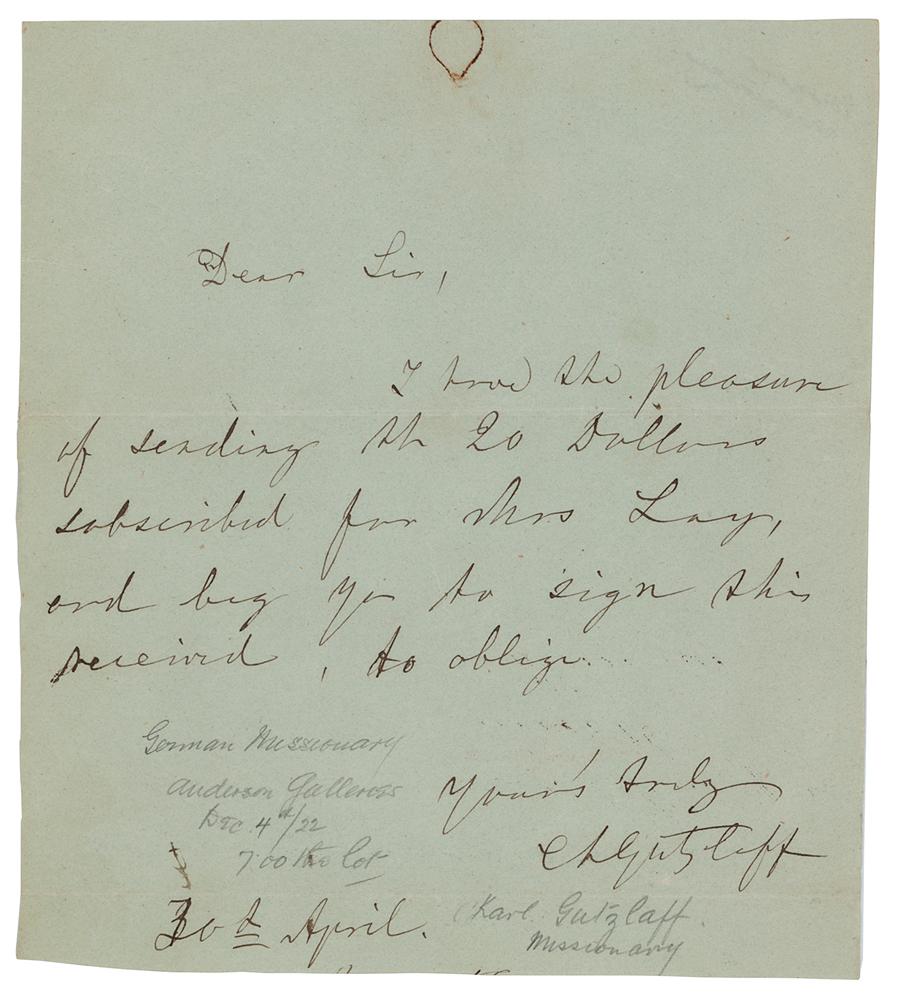 Dear Sir,
I have the pleasure
of sending th 20 Dollars
subscribed for Mrs Lay,
and beg you to sign this
received, to oblige
Your's truly
ChGutzlaff
30th April.
German Missionary
Anderson Galleries
Dec. 4th/22
7.00 the lot
(Karl Gutzlaff
Missionary